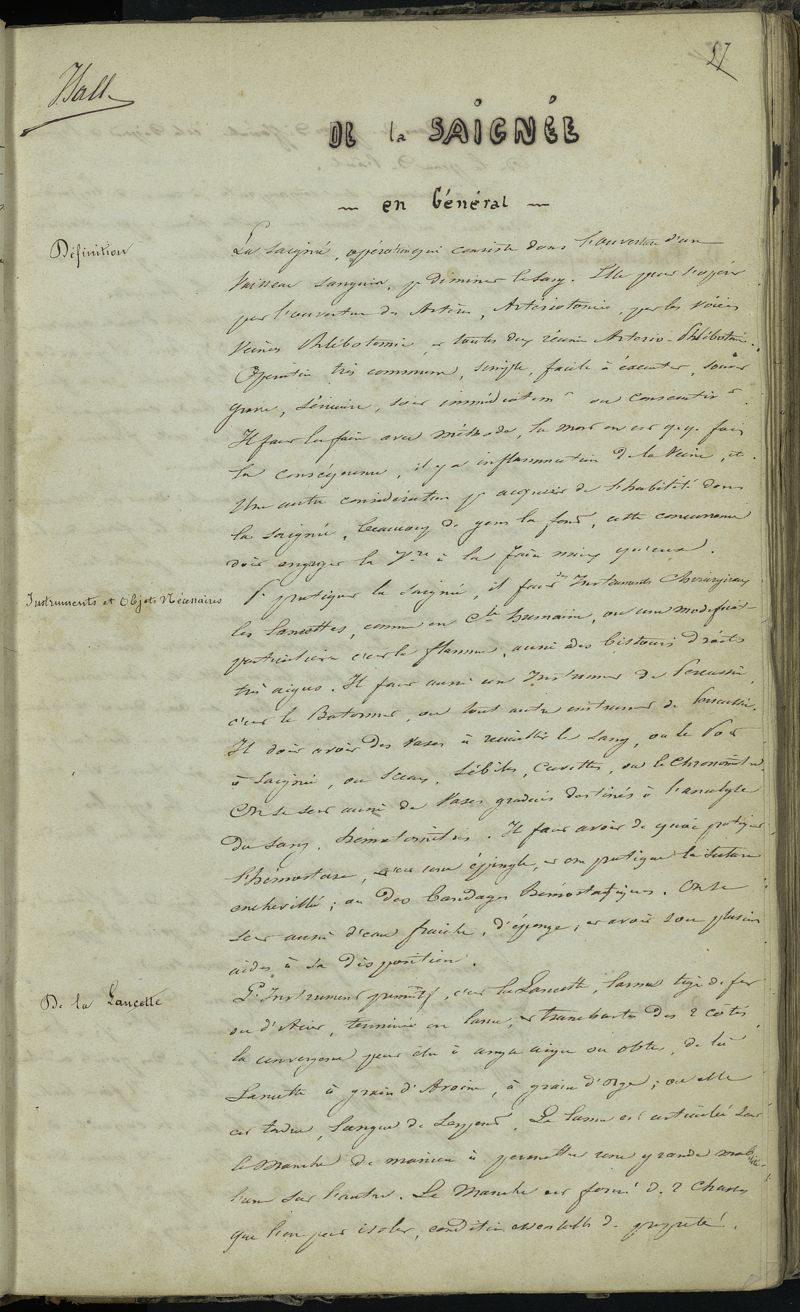 27
Hall
DE la SAIGNÉE
en Général
Définition
La saignée, opération qui consiste dans l'ouverture d'un
Vaisseau Sanguin, pr diminuer le sang. Elle peut s'opérer
par l'ouverture des Artères, Artériotomie, par les
Veines Phlébotomie, et toutes deux réunies Artério-Phlébotomie.
Opération très commune, simple, facile à éxécuter, souvent
grave, soit immédiatemt ou consécutivt.
Il faut la faire avec méthode, la mort en est qq. fois
la conséquence, il y a inflammation de la Veine, et
Une autre considération pr acquérir de l'habileté dans
la saignée, beaucoup de gens la font, cette concurrence
doit engager le Vre à la faire mieux qu'eux.
Instruments et Objets Nécessaires
Pr pratiquer la saignée, il faut des Instruments Chirurgicaux
les lancettes, comme en Cie humaine, ou une modificat.
particulière c'est la flamme, aussi des bistouris droits
très aigus. Il faut aussi un Instrument de Percussion
c'est le Batonnet, ou tout autre instrument de Percussion.
Il doit avoir des Vases à recueillir le sang, ou le Pot
à Saignée, ou Sceau, Sébiles, Cuvettes, ou le Chronomètre.
On se sert aussi de Vases gradués destinés à l'analyse
du sang, hématomètres. Il faut avoir de quoi pratiquer
l'hémostase, c'est une épingle, et on pratique la suture
entortillée; ou des bandages Hémostatiques. On se
sert aussi d'eau fraîche, d'éponge, et avoir son plusieurs
aides à sa disposition.
De la Lancette
Pr Instrument primitif, c'est la Lancette, lame tige de fer
ou d'Acier, terminée en lame, et tranchante des 2 côtés,
la convergence peut être à angle aigu ou obtu, de là
Lancette à grain d'Avoine, à grain d'Orge; ou elle
est tordue, langue de Serpent. La lame est articulée sur
le Manche de manière à permettre une grande mobilité
l'une sur l'autre. Le Manche est formé de 2 Chasses
que l'on peut isoler, condition essentielle de propreté.